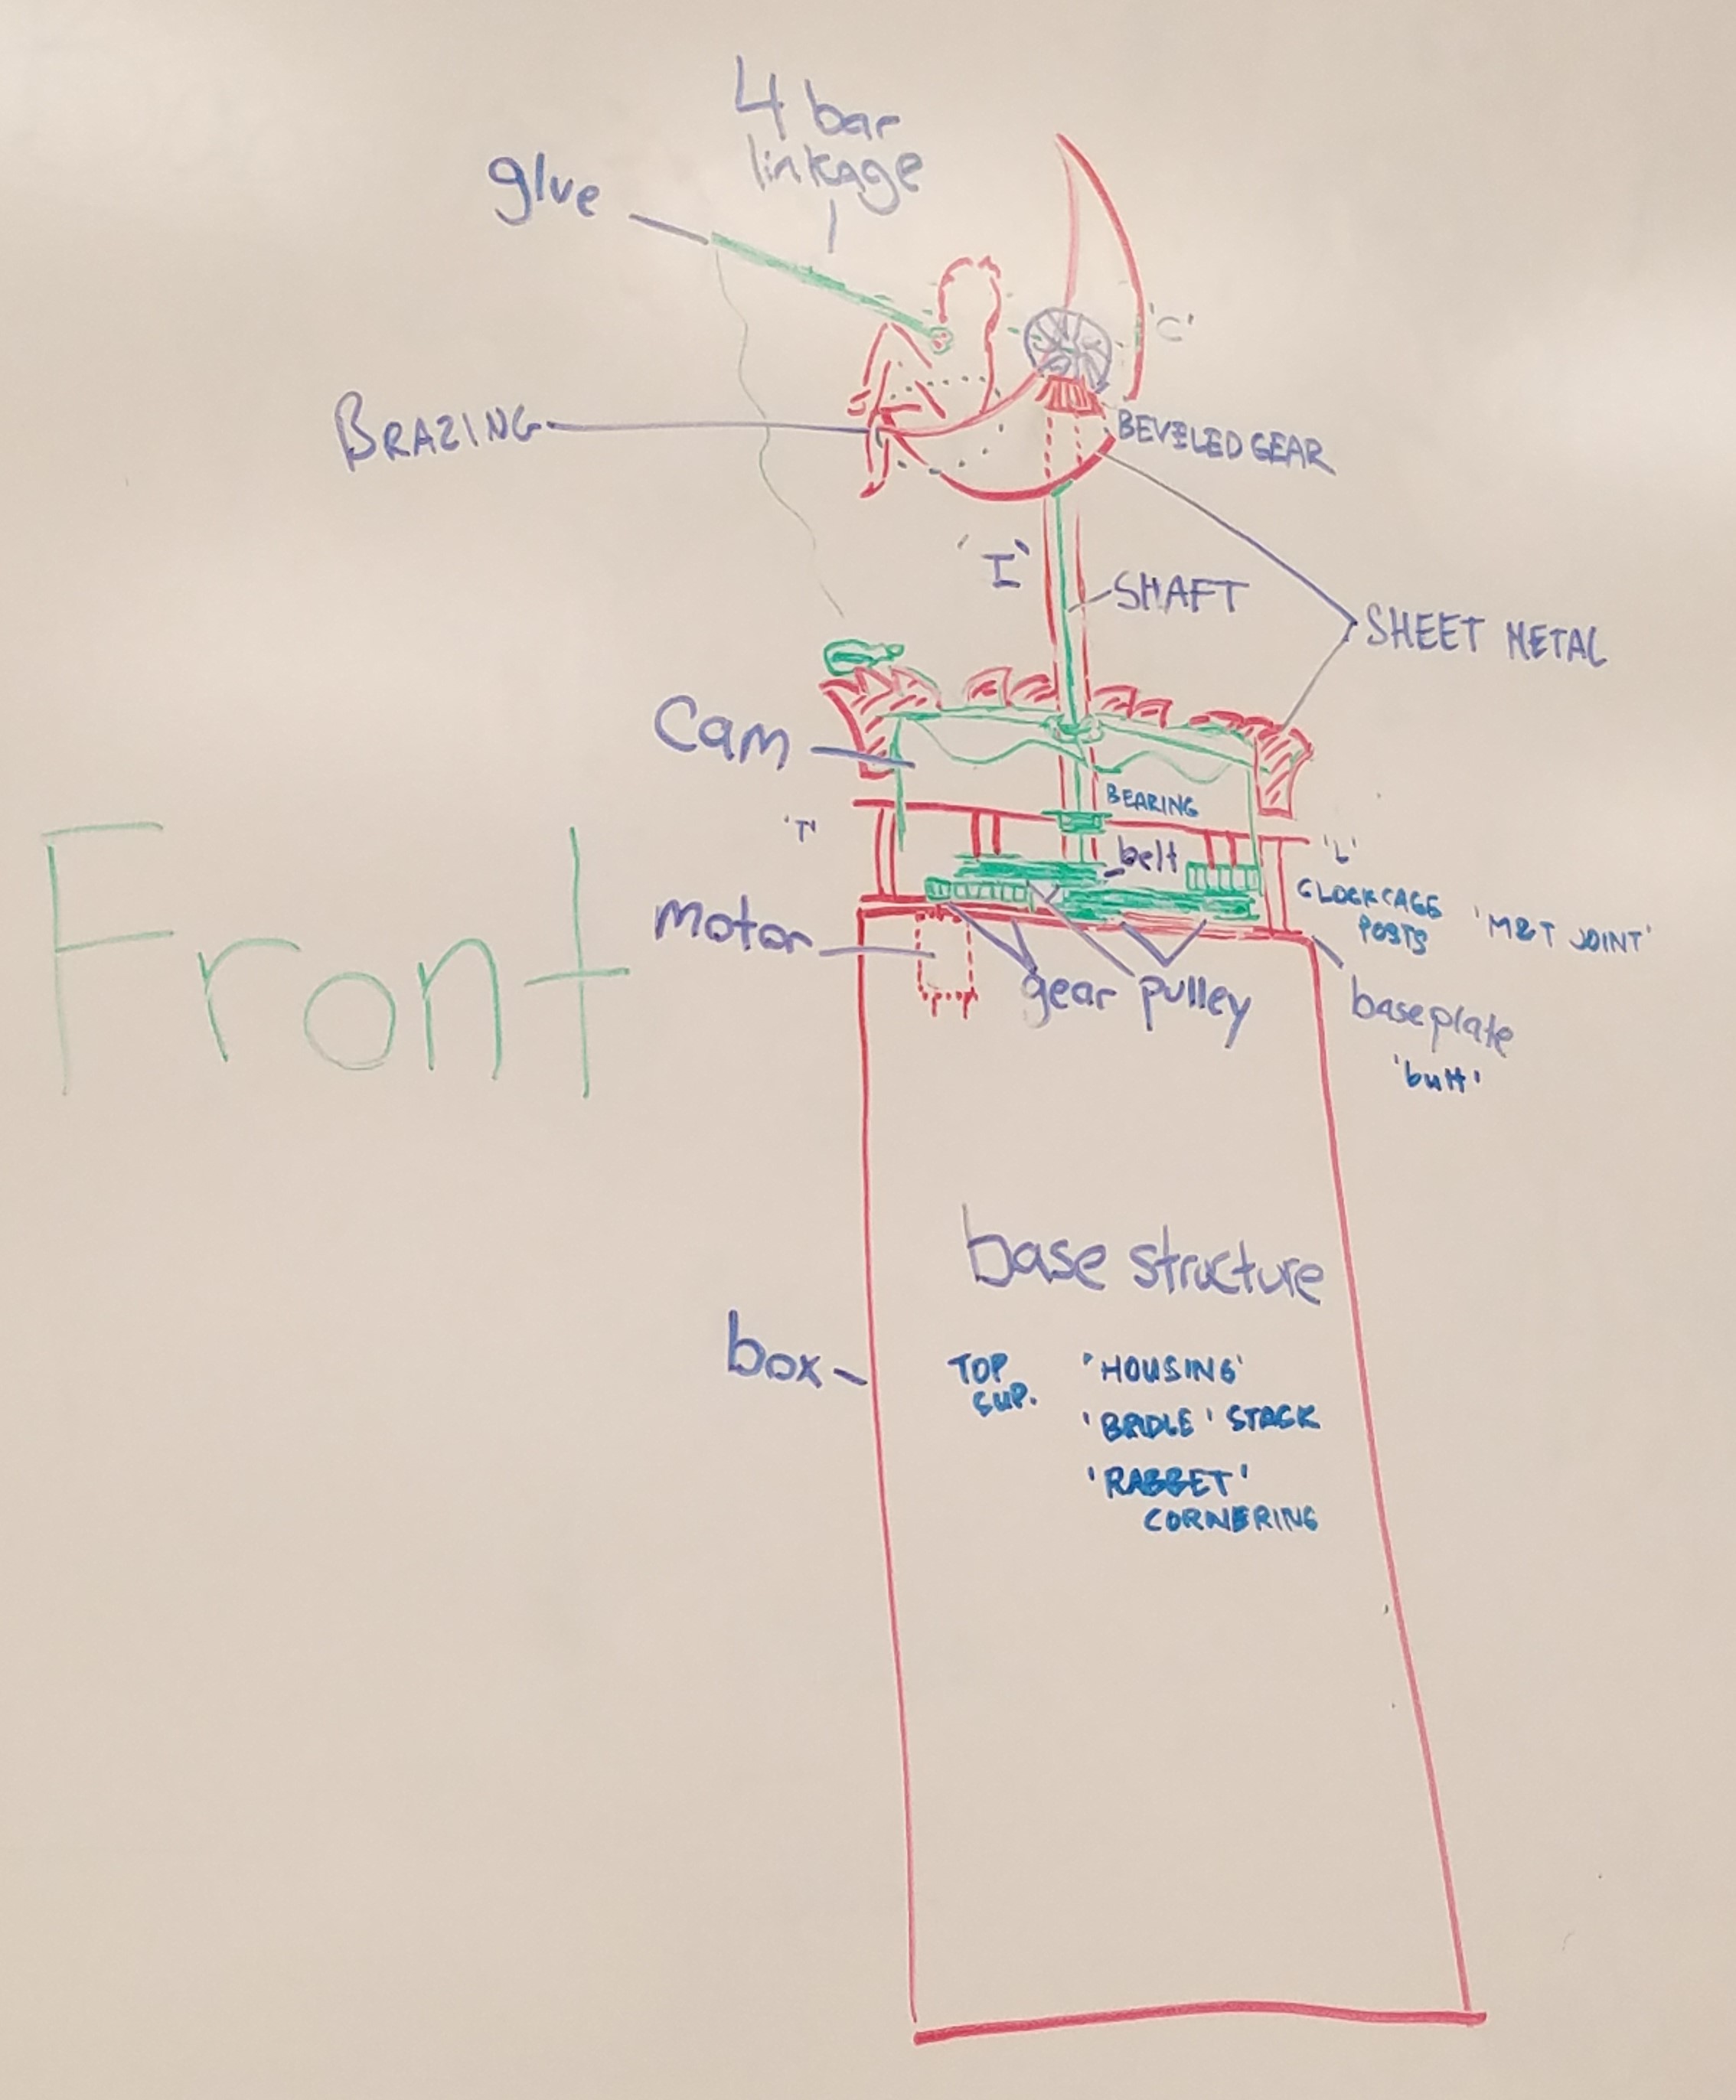 4 bar
linkage
glue
'C'
BRAZING
BEVELED GEAR
'I'
SHAFT
SHEET METAL
Cam
BEARING
'T'
belt
'L'
CLOCK CAGE
POSTS
'M&T JOINT'
Front
motor
gear pulley
baseplate
'butt'
base structure
box
TOP
SUP.
'HOUSING'
'BRIDLE' STACK
'RABBET'
CORNERING